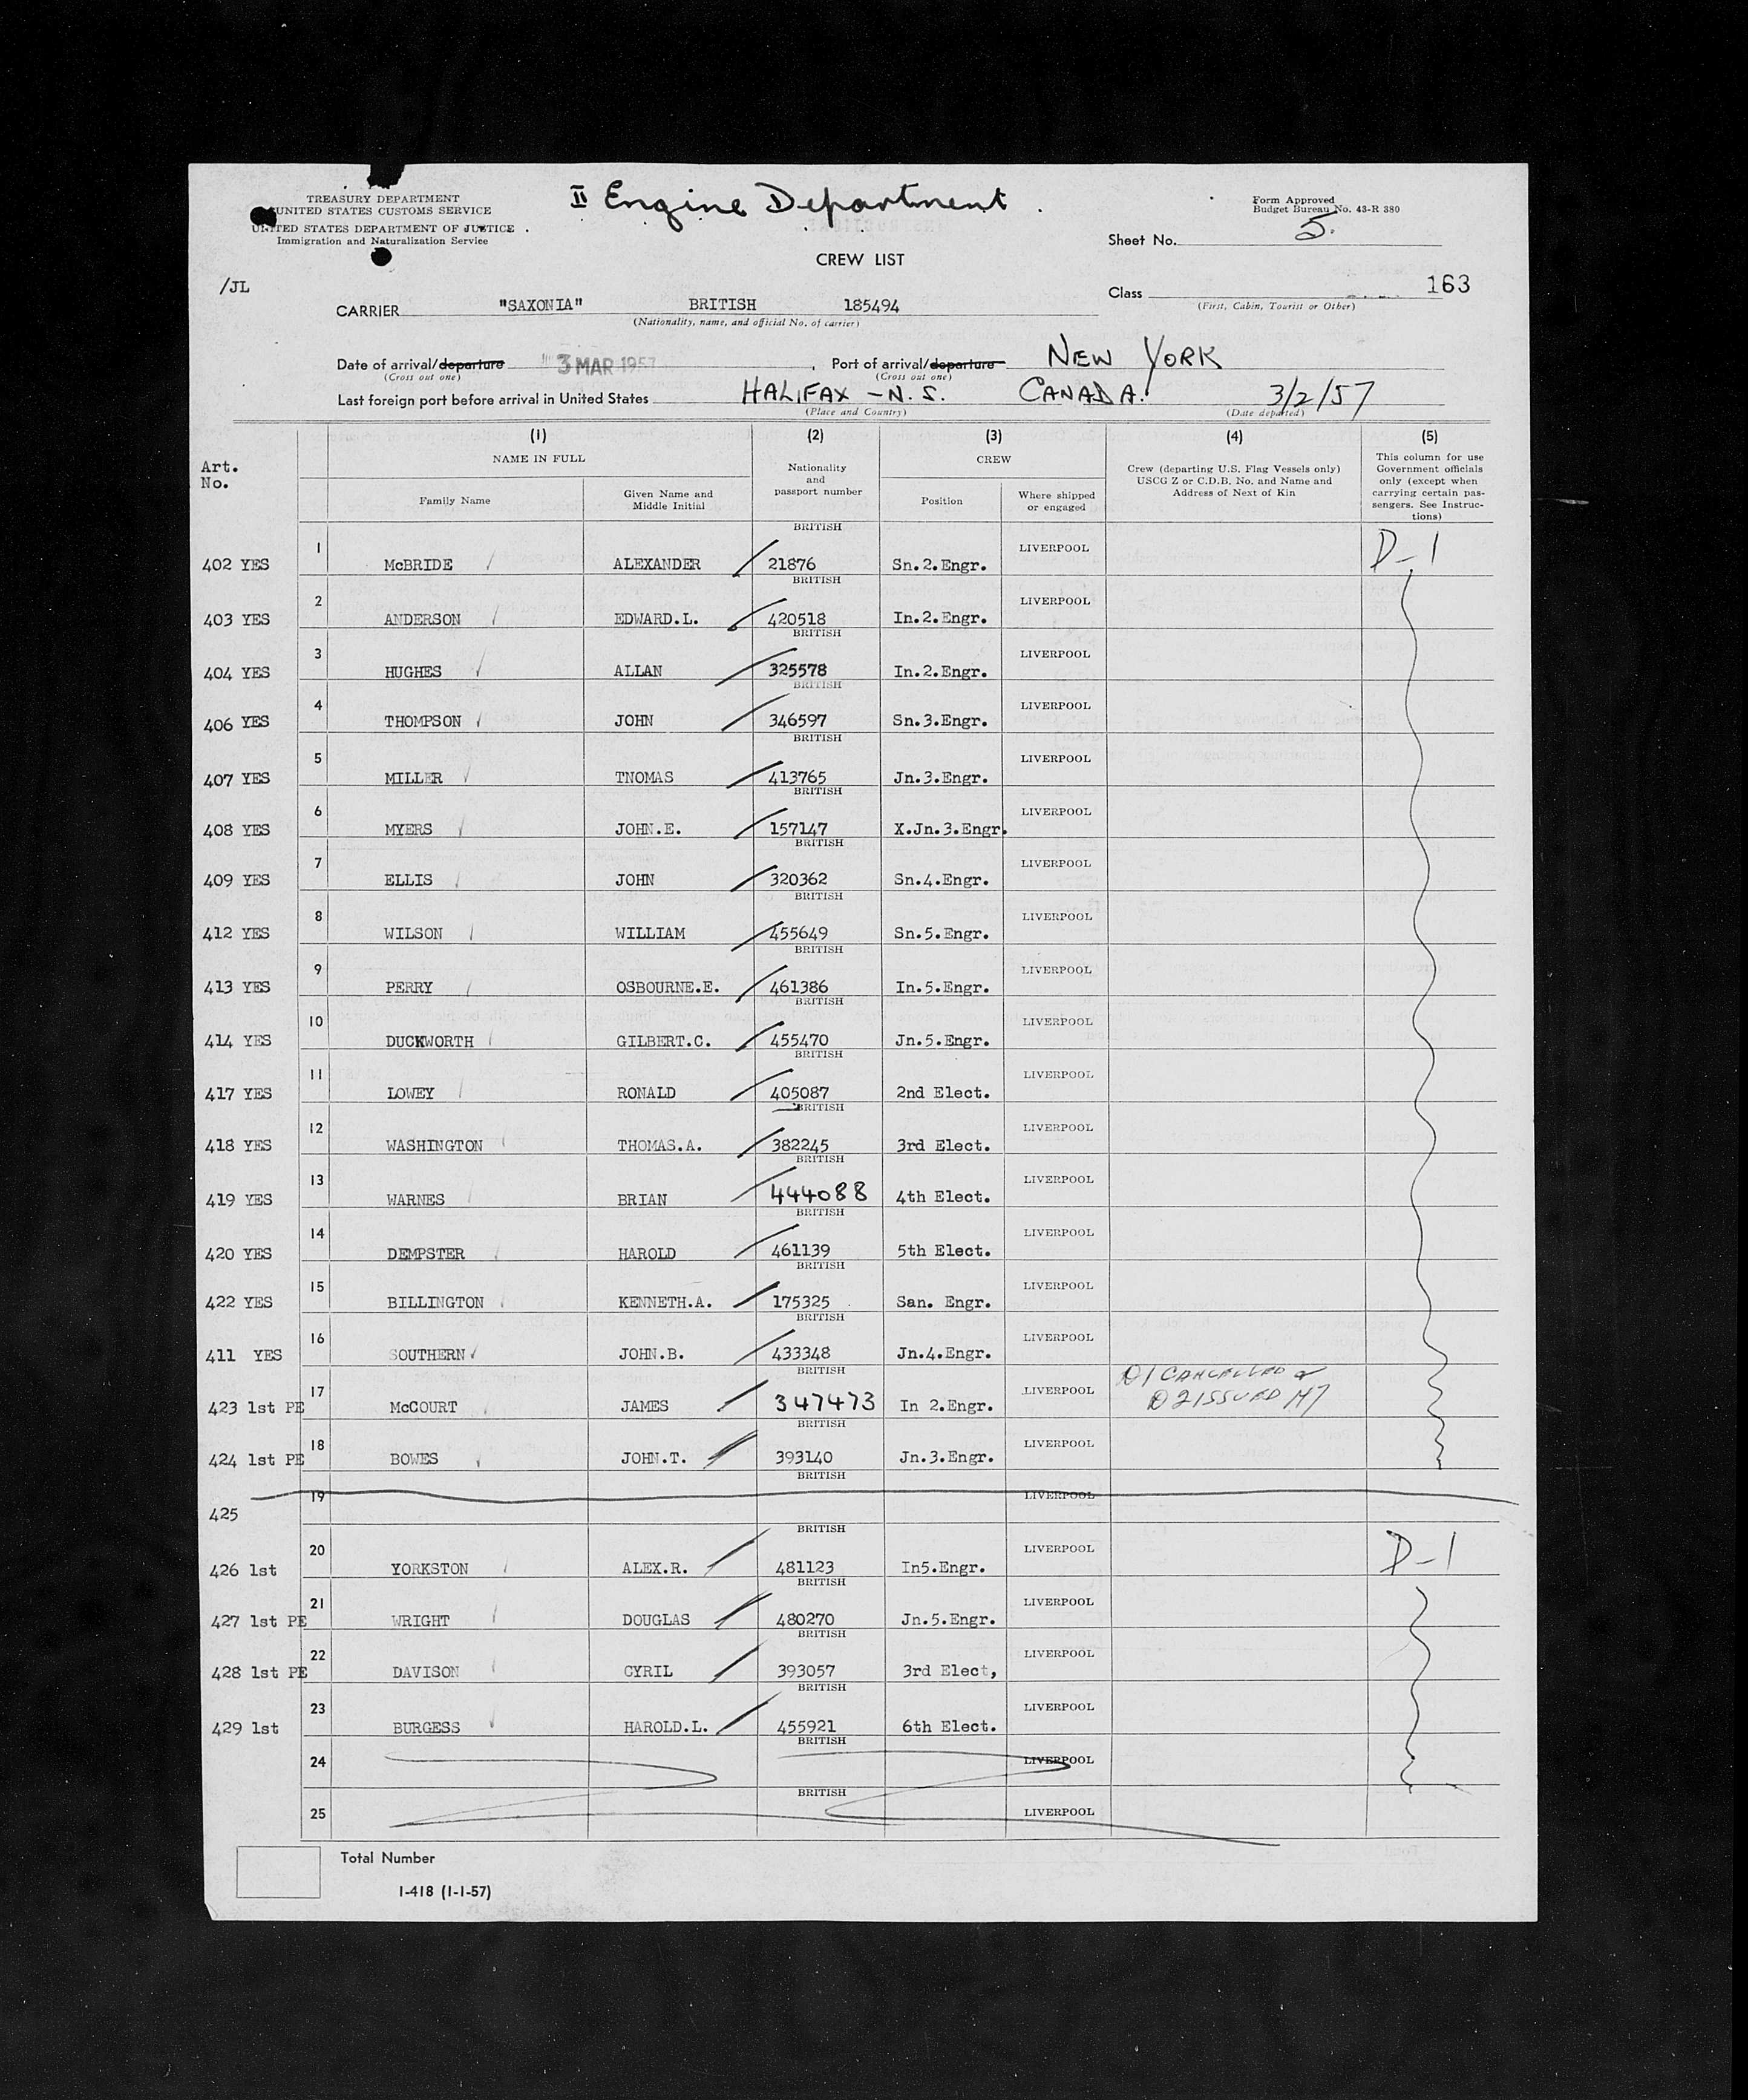 II Engine Department.
TREASURY DEPARTMENT
UNITED STATES CUSTOMS SERVICE
UNITED STATES DEPARTMENT OF JUSTICE
Immigration and Naturalization Service
Form Approved
Budget Bureau No. 43-R 380
Sheet No. 5.
CREW LIST
/JL
Class 163
(First, Cabin, Tourist or Other)
CARRIER "SAXONIA" BRITISH 185494
(Nationality, name, and official No. of carrier)
Date of arrival/departure 3 MAR 1957, Port of arrival/departure NEW YORK
(Cross out one) (Cross out one)
Last foreign port before arrival in United States HALIFAX - N.S. CANADA. 3/2/57
(Place and Country) (Date departed)
Art. No.
(1) (2) (3) (4) (5)
NAME IN FULL
Family Name
Given Name and Middle Initial
Nationality and passport number
CREW
Position
Where shipped or engaged
Crew (departing U.S. Flag Vessels only)
USCG Z or C.D.B. No. and Name and
Address of Next of Kin
This column for use
Government officials
only (except when
carrying certain pas-
sengers. See Instruc-
tions)
402 YES 1 McBRIDE ALEXANDER BRITISH 21876 Sn.2.Engr. LIVERPOOL D-1
403 YES 2 ANDERSON EDWARD.L. BRITISH 420518 In.2.Engr. LIVERPOOL
404 YES 3 HUGHES ALLAN BRITISH 325578 In.2.Engr. LIVERPOOL
406 YES 4 THOMPSON JOHN BRITISH 346597 Sn.3.Engr. LIVERPOOL
407 YES 5 MILLER TNOMAS BRITISH 413765 Jn.3.Engr. LIVERPOOL
408 YES 6 MYERS JOHN.E. BRITISH 157147 X.Jn.3.Engr. LIVERPOOL
409 YES 7 ELLIS JOHN BRITISH 320362 Sn.4.Engr. LIVERPOOL
412 YES 8 WILSON WILLIAM BRITISH 455649 Sn.5.Engr. LIVERPOOL
413 YES 9 PERRY OSBOURNE.E. BRITISH 461386 In.5.Engr. LIVERPOOL
414 YES 10 DUCKWORTH GILBERT.C. BRITISH 455470 Jn.5.Engr. LIVERPOOL
417 YES 11 LOWEY RONALD BRITISH 405087 2nd Elect. LIVERPOOL
418 YES 12 WASHINGTON THOMAS.A. BRITISH 382245 3rd Elect. LIVERPOOL
419 YES 13 WARNES BRIAN BRITISH 444088 4th Elect. LIVERPOOL
420 YES 14 DEMPSTER HAROLD BRITISH 461139 5th Elect. LIVERPOOL
422 YES 15 BILLINGTON KENNETH.A. BRITISH 175325 San. Engr. LIVERPOOL
411 YES 16 SOUTHERN JOHN.B. BRITISH 433348 Jn.4.Engr. LIVERPOOL
423 1st PE 17 McCOURT JAMES BRITISH 347473 In 2.Engr. LIVERPOOL D1 CANCELLED &
D2 ISSUED
424 1st PE 18 BOWES JOHN.T. BRITISH 393140 Jn.3.Engr. LIVERPOOL
425 19 BRITISH LIVERPOOL
426 1st 20 YORKSTON ALEX.R. BRITISH 481123 In5.Engr. LIVERPOOL D-1
427 1st PE 21 WRIGHT DOUGLAS BRITISH 480270 Jn.5.Engr. LIVERPOOL
428 1st PE 22 DAVISON CYRIL BRITISH 393057 3rd Elect, LIVERPOOL
429 1st 23 BURGESS HAROLD.L. BRITISH 455921 6th Elect. LIVERPOOL
24 BRITISH LIVERPOOL
25 BRITISH LIVERPOOL
Total Number
I-418 (1-1-57)